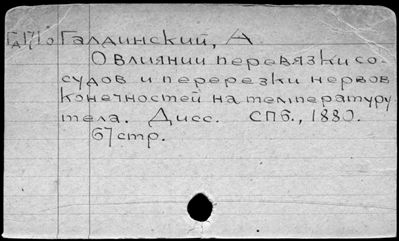 Галдинский, А
О влиянии перевязки со-
судов и перерезки нервов
конечностей на температуру
тела. Дисс. СПб., 1880.
67 стр.